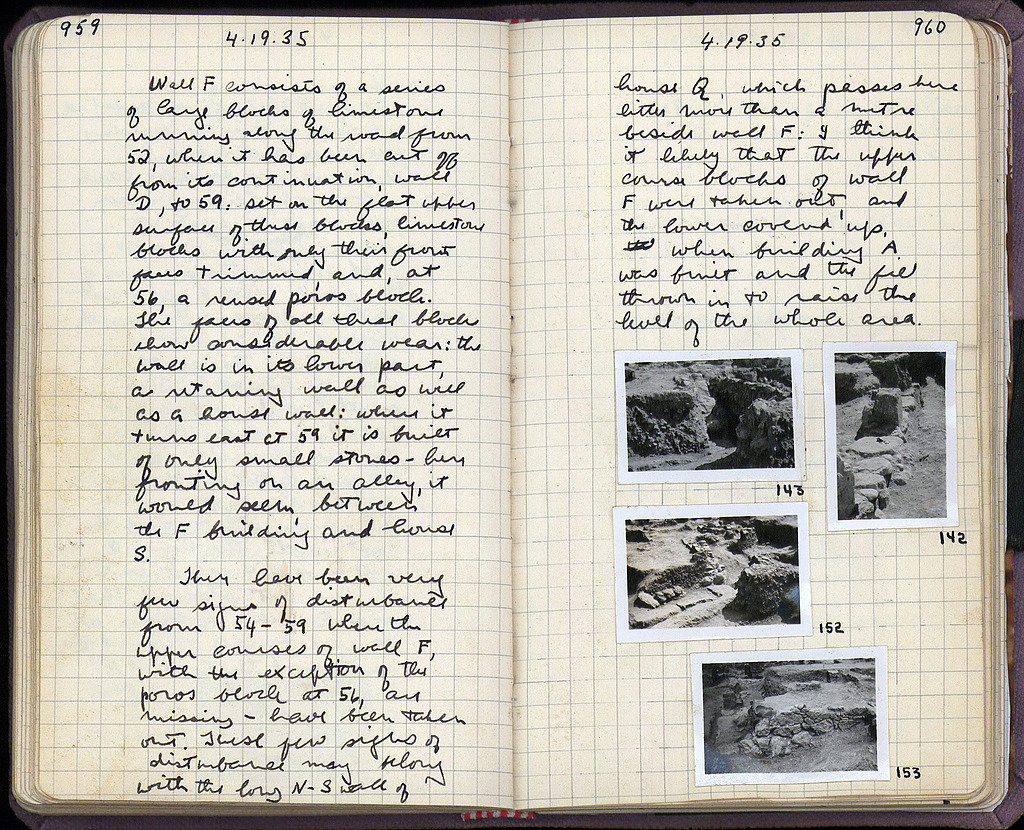 959
4.19.35
Wall F consists of a series
of large blocks of limestone
running along the road from
52, where it has been cut off
from its continuation, wall
D, to 59: set on the flat upper
surface of these blocks, limestone
blocks with only their front
faces trimmed, and, at
56, a reused poros block.
The faces of all these blocks
show considerable wear: the
wall is in its lower part,
a retaining wall as well
as a house wall: where it
turns east at 59 it is built
of only small stones - here
fronting on an alley, it
would seem, between
the F building and house
S.
There have been very
few signs of disturbance
from 54-59 where the
upper courses of wall F,
with the exception of the
poros block at 56, are
missing - have been taken
out. These few signs of
disturbance may belong
with the long N-S wall of
960
4.19.35
house Q, which passes here
little more than a metre
beside wall F: I think
it likely that the upper
course blocks of wall
F were taken out, and
the lower covered up,
when building A
was built and the fill
thrown in to raise the
level of the whole area.
143
142
152
153